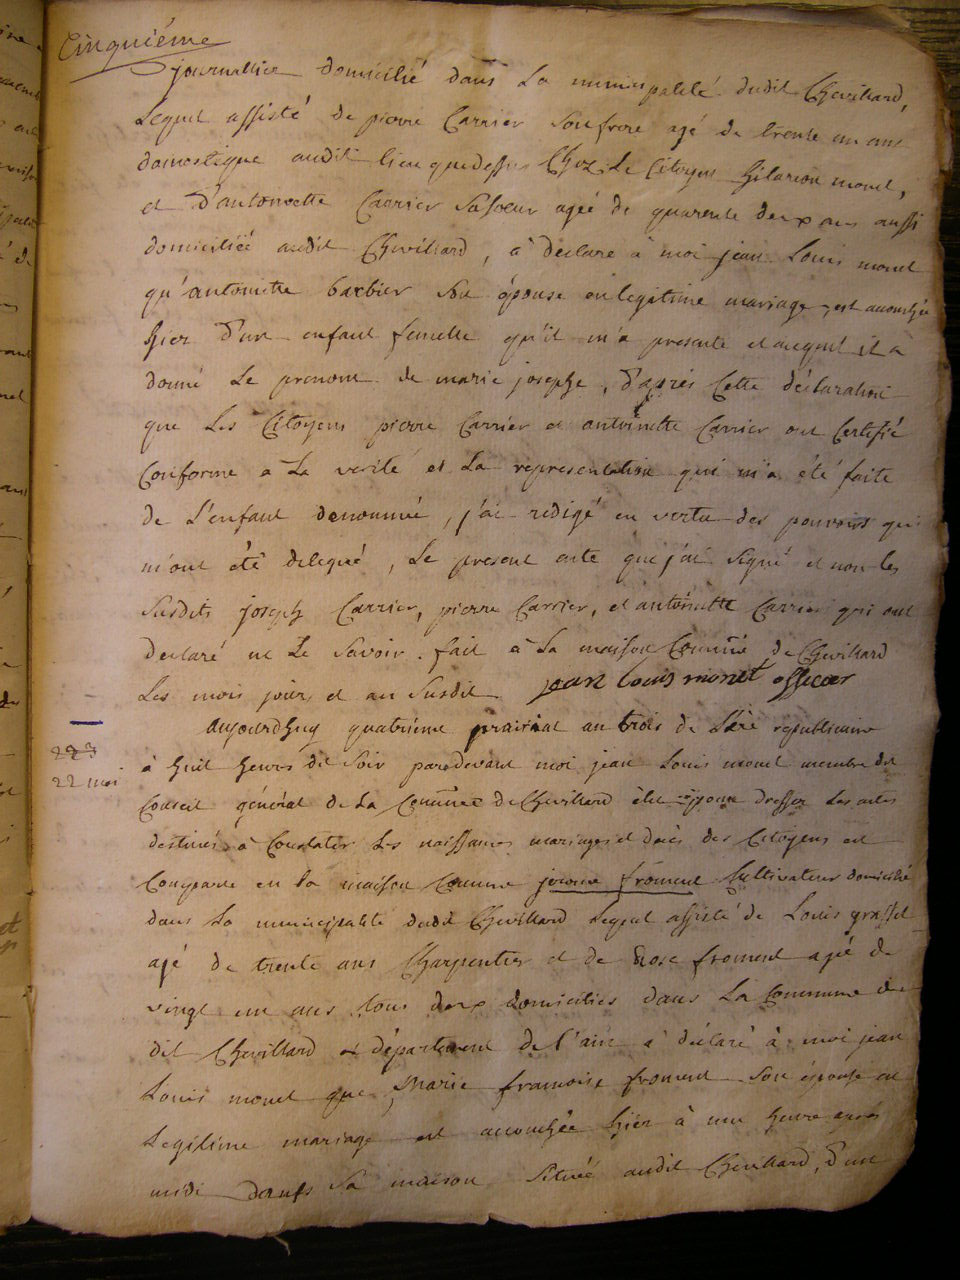 Cinquiéme
journallier domicilié dans la municipalité dudit Chevillard,
Lequel assisté de pierre Carrier son frere agé de trente un ans
domestique audit lieu que dessus Chez Le Citoyen hilarion monet,
et d'antoinette Carrier sa soeur agée de quarente deux ans aussi
domiciliée audit Chevillard, à déclaré à moi jean Louis monet
qu'antoinette barbier son épouse en legitime mariage, est accouchée
hier d'un enfant femelle qu'il m'a presenté et auquel il a
donné Le prenom de marie josephe, d'après Cette déclaration
que Les Citoyens pierre Carrier et antoinette Carrier ont Certifié
Conforme a La verité et La representation qui m'a été faite
de L'enfant denommée, j'ai redigé en vertu des pouvoirs qui
m'ont été delegué, Le present acte que j'ai signé et non les
susdits joseph Carrier, pierre Carrier, et antoinette Carrier qui ont
declaré ne Le savoir. fait à La maison Commune de Chevillard
Les mois jour et an susdit jean louis monet officier
aujourdhuy quatrième prairial an trois de L'ère républicaine
223
à huit heures du soir pardevant moi jean Louis monet membre du
22 mai
Conseil général de La Commune de Chevillard élu pour dresser Les actes
destinés à Constater Les naissances mariages et décès des Citoyens est
Comparu en La maison Commune froment Cultivateur domicilié
dans La municipalité dudit Chevillard Lequel assisté de Louis
agé de trente ans Charpentier et de Rose froment agée de
vingt un ans tous deux domiciliés dans La Commune du
dit Chevillard et département de l'ain a déclaré à moi jean
Louis monet que Marie francoise froment son épouse en
Legitime mariage est accouchée hier à une heure après
midi dans sa maison située audit Chevillard, d'un